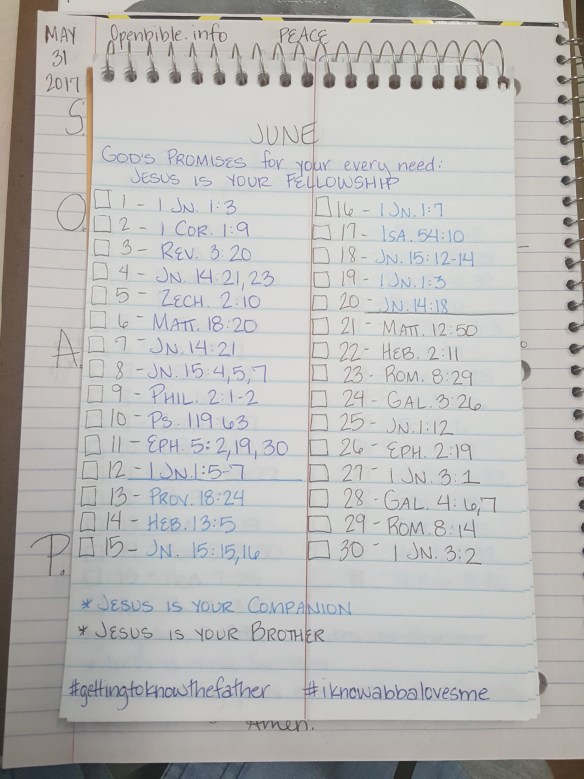 MAY
31
2017
Openbible.info
PEACE
S.
O.
A.
P.
JUNE
GOD'S PROMISES for your every need:
JESUS IS YOUR FELLOWSHIP
1 - 1 JN. 1:3
2 - 1 COR. 1:9
3 - REV. 3:20
4 - JN. 14:21,23
5 - ZECH. 2:10
6 - MATT. 18:20
7 - JN. 14:21
8 - JN. 15:4,5,7
9 - PHIL. 2:1-2
10 - PS. 119:63
11 - EPH. 5:2,19,30
12 - 1 JN. 1:5-7
13 - PROV. 18:24
14 - HEB. 13:5
15 - JN. 15:15,16
16 - 1 JN. 1:7
17 - ISA. 54:10
18 - JN. 15:12-14
19 - 1 JN. 1:3
20 - JN. 14:18
21 - MATT. 12:50
22 - HEB. 2:11
23 - ROM. 8:29
24 - GAL. 3:26
25 - JN. 1:12
26 - EPH. 2:19
27 - 1 JN. 3:1
28 - GAL. 4:6,7
29 - ROM. 8:14
30 - 1 JN. 3:2
* JESUS IS YOUR COMPANION
* JESUS IS YOUR BROTHER
#gettingtoknowthefather #iknowabbalovesme
Amen.